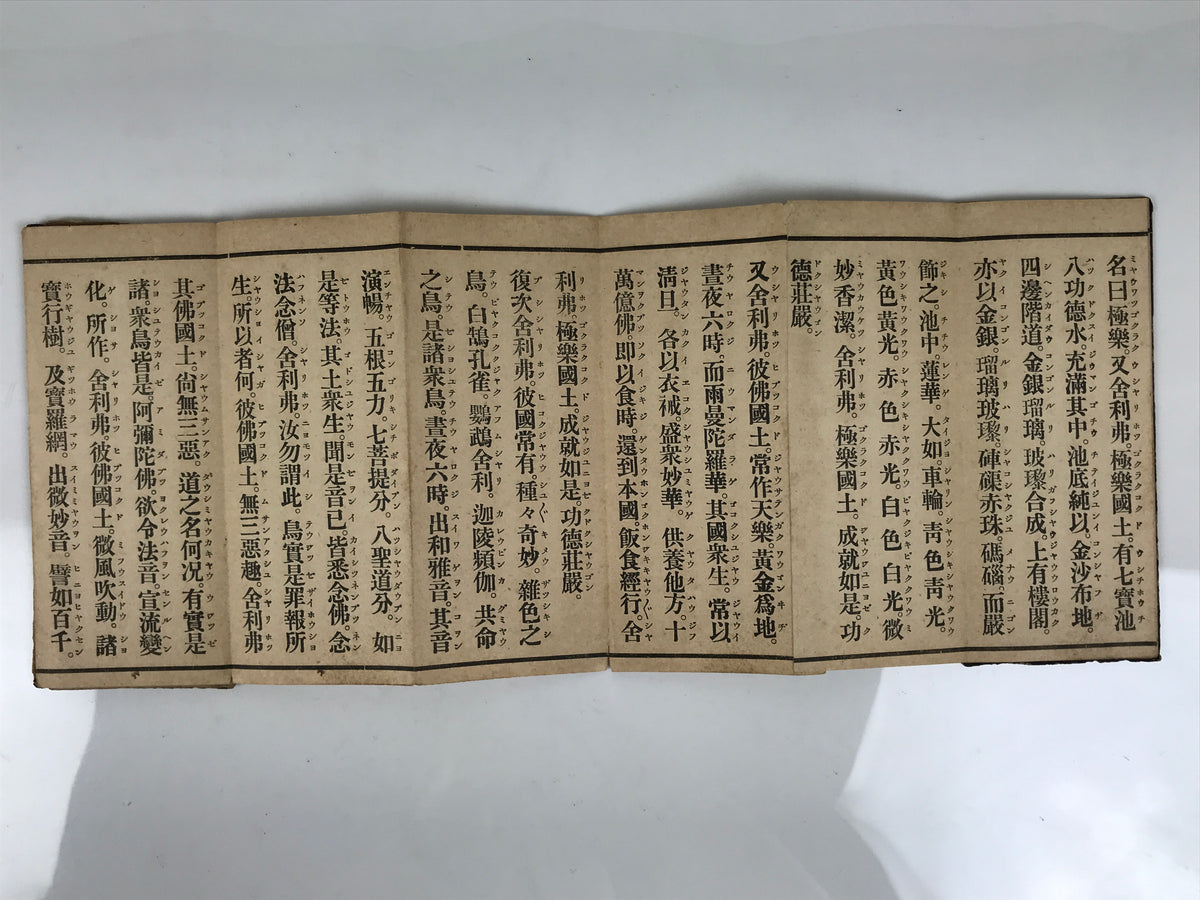 名曰極樂。又舍利弗。極樂國土。有七寶池
八功德水。充滿其中。池底純以。金沙布地。
四邊階道。金銀瑠璃。玻瓈合成。上有樓閣。
亦以金銀。瑠璃玻瓈。硨磲赤珠。碼碯。而嚴
飾之。池中。蓮華。大如車輪。靑色靑光。
黃色黃光。赤色赤光。白色白光。微
妙香潔。舍利弗。極樂國土。成就如是。功
德莊嚴。
又舍利弗。彼佛國土。常作天樂。黃金爲地。
晝夜六時。而雨曼陀羅華。其國衆生。常以
淸旦。各以衣裓。盛衆妙華。供養他方。十
萬億佛。卽以食時。還到本國。飯食經行。舍
利弗。極樂國土。成就如是。功德莊嚴。
復次舍利弗。彼國常有。種々奇妙。雜色之
鳥。白鵠孔雀。鸚鵡舍利。迦陵頻伽。共命
之鳥。是諸衆鳥。晝夜六時。出和雅音。其音
演暢。五根五力。七菩提分。八聖道分。如
是等法。其土衆生。聞是音已。皆悉念佛。念
法念僧。舍利弗。汝勿謂此。鳥實是罪報所
生。所以者何。彼佛國土。無三惡趣。舍利弗
其佛國土。尙無三惡。道之名何况。有實是
諸。衆鳥皆是。阿彌陀佛。欲令法音。宣流變
化。所作。舍利弗。彼佛國土。微風吹動。諸
寶行樹。及寶羅網。出微妙音。譬如百千。